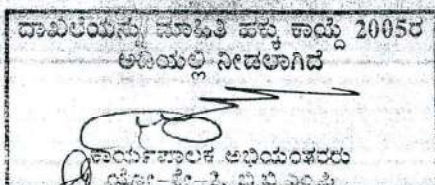 ದಾಖಲೆಯನ್ನು ಮಾಹಿತಿ ಹಕ್ಕು ಕಾಯ್ದೆ 2005ರ
ಅಡಿಯಲ್ಲಿ ನೀಡಲಾಗಿದೆ
ಕಾರ್ಯಪಾಲಕ ಅಭಿಯಂತರರು